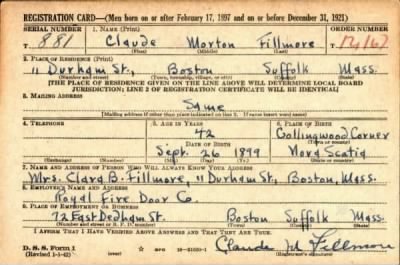 REGISTRATION CARD—(Men born on or after February 17, 1897 and on or before December 31, 1921)
SERIAL NUMBER 1. NAME (Print) ORDER NUMBER
T 881 Claude Morton Fillmore 12,167
(First) (Middle) (Last)
2. PLACE OF RESIDENCE (Print)
11 Durham St., Boston Suffolk Mass.
(Number and street) (Town, township, village, or city) (County) (State)
[THE PLACE OF RESIDENCE GIVEN ON THE LINE ABOVE WILL DETERMINE LOCAL BOARD
JURISDICTION; LINE 2 OF REGISTRATION CERTIFICATE WILL BE IDENTICAL]
3. MAILING ADDRESS
Same
[Mailing address if other than place indicated on line 2. If same insert word same]
4. TELEPHONE 5. AGE IN YEARS 6. PLACE OF BIRTH
42 Collingwood Corner
DATE OF BIRTH (Town or county)
Sept. 26 1899 Nova Scotia
(Exchange) (Number) (Mo.) (Day) (Yr.) (State or country)
7. NAME AND ADDRESS OF PERSON WHO WILL ALWAYS KNOW YOUR ADDRESS
Mrs. Clara B. Fillmore, 11 Durham St., Boston, Mass.
8. EMPLOYER'S NAME AND ADDRESS
Royal Fire Door Co.
9. PLACE OF EMPLOYMENT OR BUSINESS
72 East Dedham St. Boston Suffolk Mass.
(Number and street or R. F. D. number) (Town) (County) (State)
I AFFIRM THAT I HAVE VERIFIED ABOVE ANSWERS AND THAT THEY ARE TRUE.
D. S. S. Form 1 Claude M Fillmore
(Revised 1-1-42) (Registrant's signature)